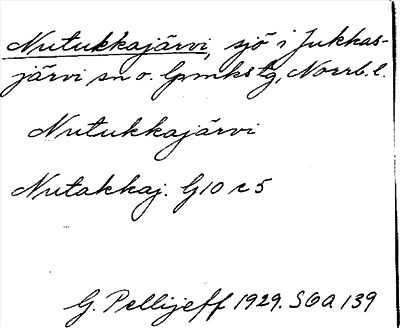 Nutukkajärvi, sjö i Jukkas-
järvi sn o. lpmkstg, Norrb. l.
Nutukkajärvi
Nutakkaj. G10 r 5
G. Pellijeff 1929. SOA 139